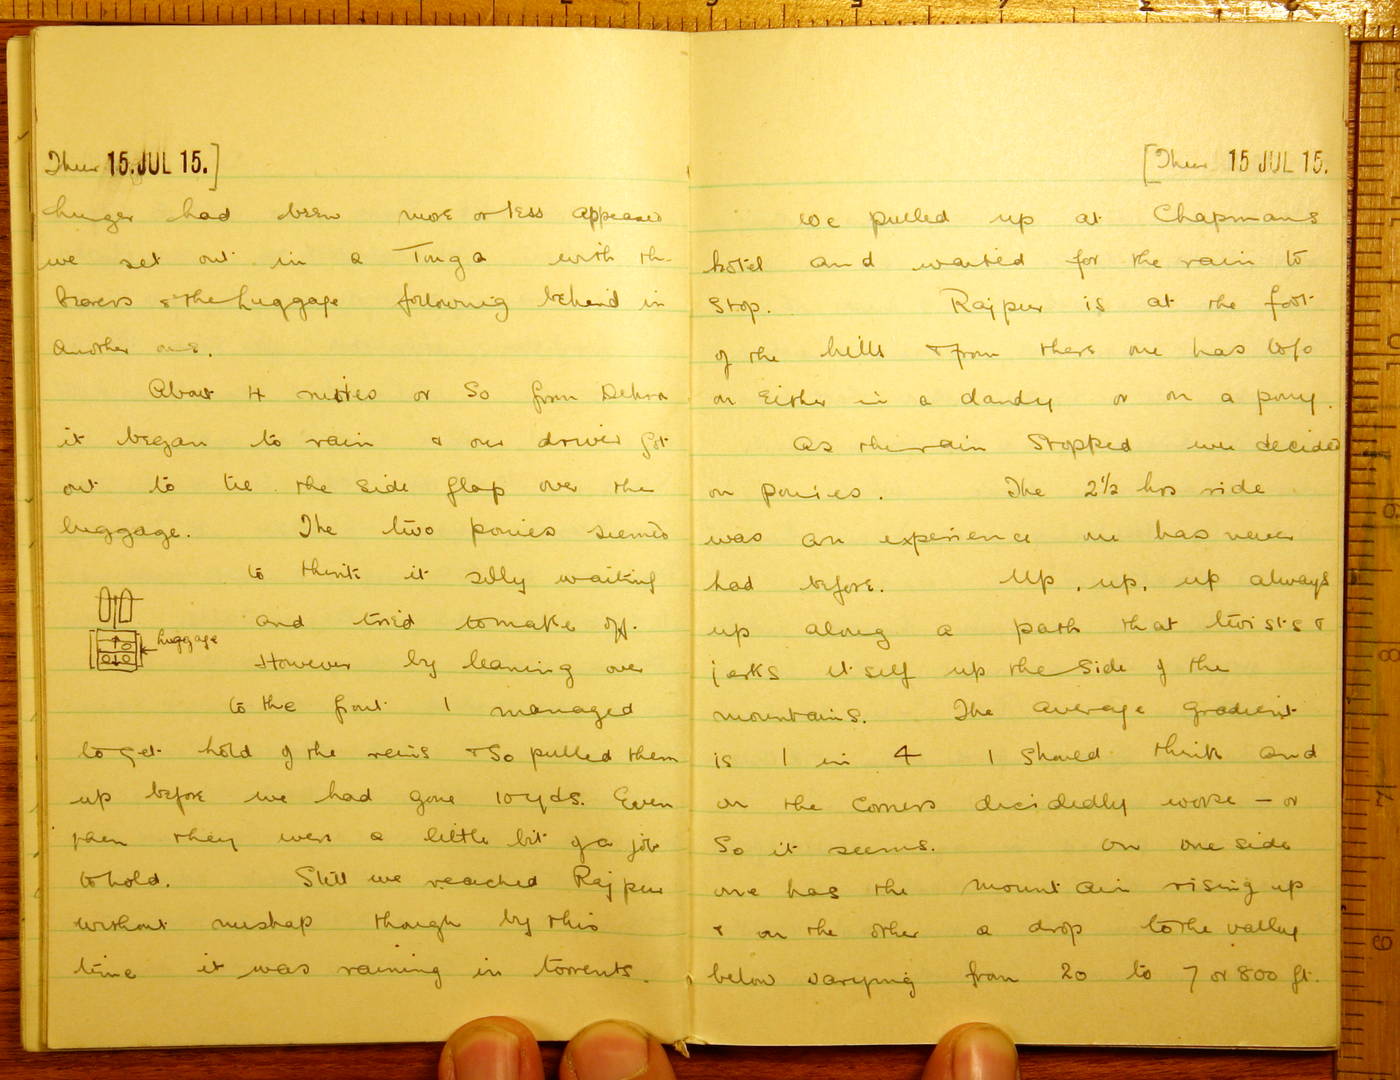 Thur 15. JUL 15.]
hunger had been more or less appeased
we set out in a Tonga with the
bearers & the luggage following behind in
another one.
About 4 miles or so from Dehra
it began to rain & our driver got
out to tie the side flap over the
luggage. The two ponies seemed
to think it silly waiting
and tried to make off.
luggage
However by leaning over
to the front I managed
to get hold of the reins & so pulled them
up before we had gone 10 yds. Even
then they were a little bit of a job
to hold. Still we reached Rajpur
without mishap though by this
time it was raining in torrents.
[Thur 15 JUL 15.
We pulled up at Chapmans
hotel and waited for the rain to
stop. Rajpur is at the foot
of the hills & from there one has to go
on either in a dandy or on a pony.
As the rain stopped we decided
on ponies. The 2½ hrs ride
was an experience one has never
had before. Up, up, up always
up along a path that twists &
jerks itself up the side of the
mountains. The average gradient
is 1 in 4 I should think and
on the corners decidedly worse – or
so it seems. On one side
one has the mountain rising up
& on the other a drop to the valley
below varying from 20 to 7 or 800 ft.